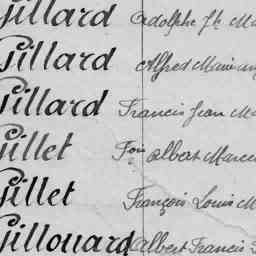 Gillard Adolphe Jh Ma
Gillard Alfred Marie
Gillard Francis Jean M
Gillet Fois Albert Marce
Gillet François Louis M
Gillouard Albert Francis